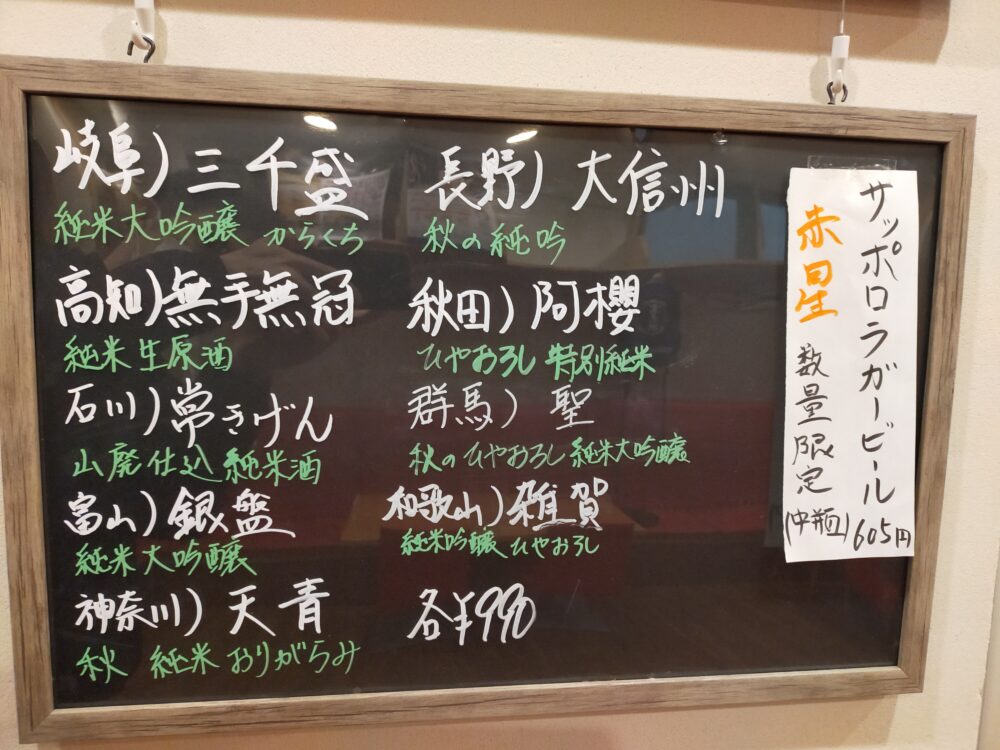 岐阜)三千盛
純米大吟醸 からくち
高知)無手無冠
純米生原酒
石川)常きげん
山廃仕込純米酒
富山)銀盤
純米大吟醸
神奈川)天青
秋 純米おりがらみ
長野)大信州
秋の純吟
秋田)阿櫻
ひやおろし 特別純米
群馬)聖
秋のひやおろし純米大吟醸
和歌山)雑賀
純米吟醸ひやおろし
各¥990
サッポロラガービール 605円
赤星 数量限定 (中瓶)